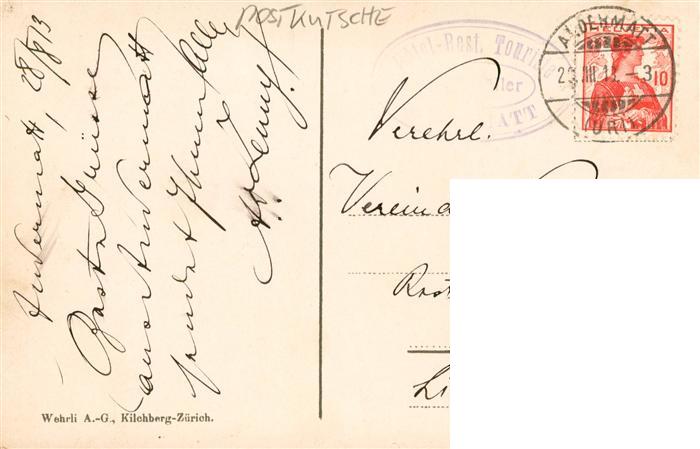 POSTKUTSCHE
Andermatt, 28/8 13
Beste Grüsse
aus Andermatt
sendet Ihnen Allen
Hotel-Rest. Touring
ATT
ANDERMATT
29.VIII.13.-3
(URI)
10
Verehrl.
Verein
Li
Wehrli A.-G., Kilchberg-Zürich.